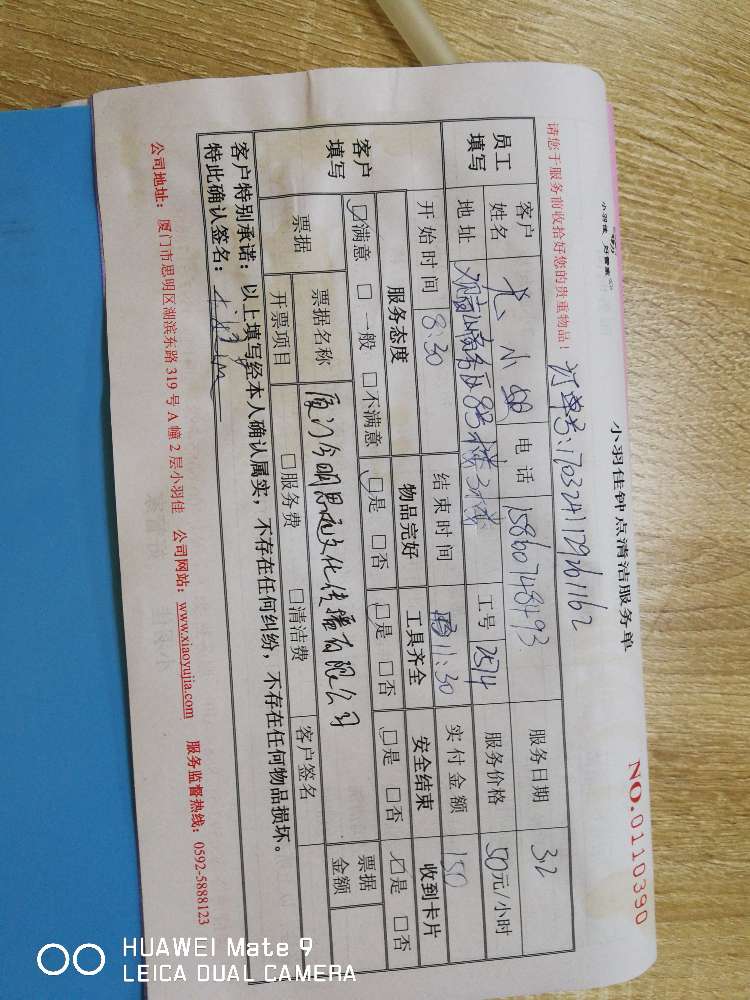 小羽佳钟点清洁服务单
NO.0110390
订单号:170324117926 1162
请您于服务前收拾好您的贵重物品!
员工填写
客户姓名 小姐 电话 15860748493 服务日期 3.2
地址 观音山商务区8号楼 工号 2514 服务价格 50元/小时
开始时间 8:30 结束时间 11:30 实付金额 150
客户填写
服务态度 物品完好 工具齐全 安全结束 收到卡片
☑满意 □一般 □不满意 ☑是 □否 ☑是 □否 ☑是 □否 ☑是 □否
票据 票据名称 厦门今明思远文化传播有限公司 票据金额
开票项目 □服务费 □清洁费 客户签名
客户特别承诺:以上填写经本人确认属实,不存在任何纠纷,不存在任何物品损坏。
特此确认签名:
公司地址: 厦门市思明区湖滨东路319号A幢2层小羽佳 公司网站:www.xiaoyujia.com 服务监督热线:0592-5888123
HUAWEI Mate 9
LEICA DUAL CAMERA